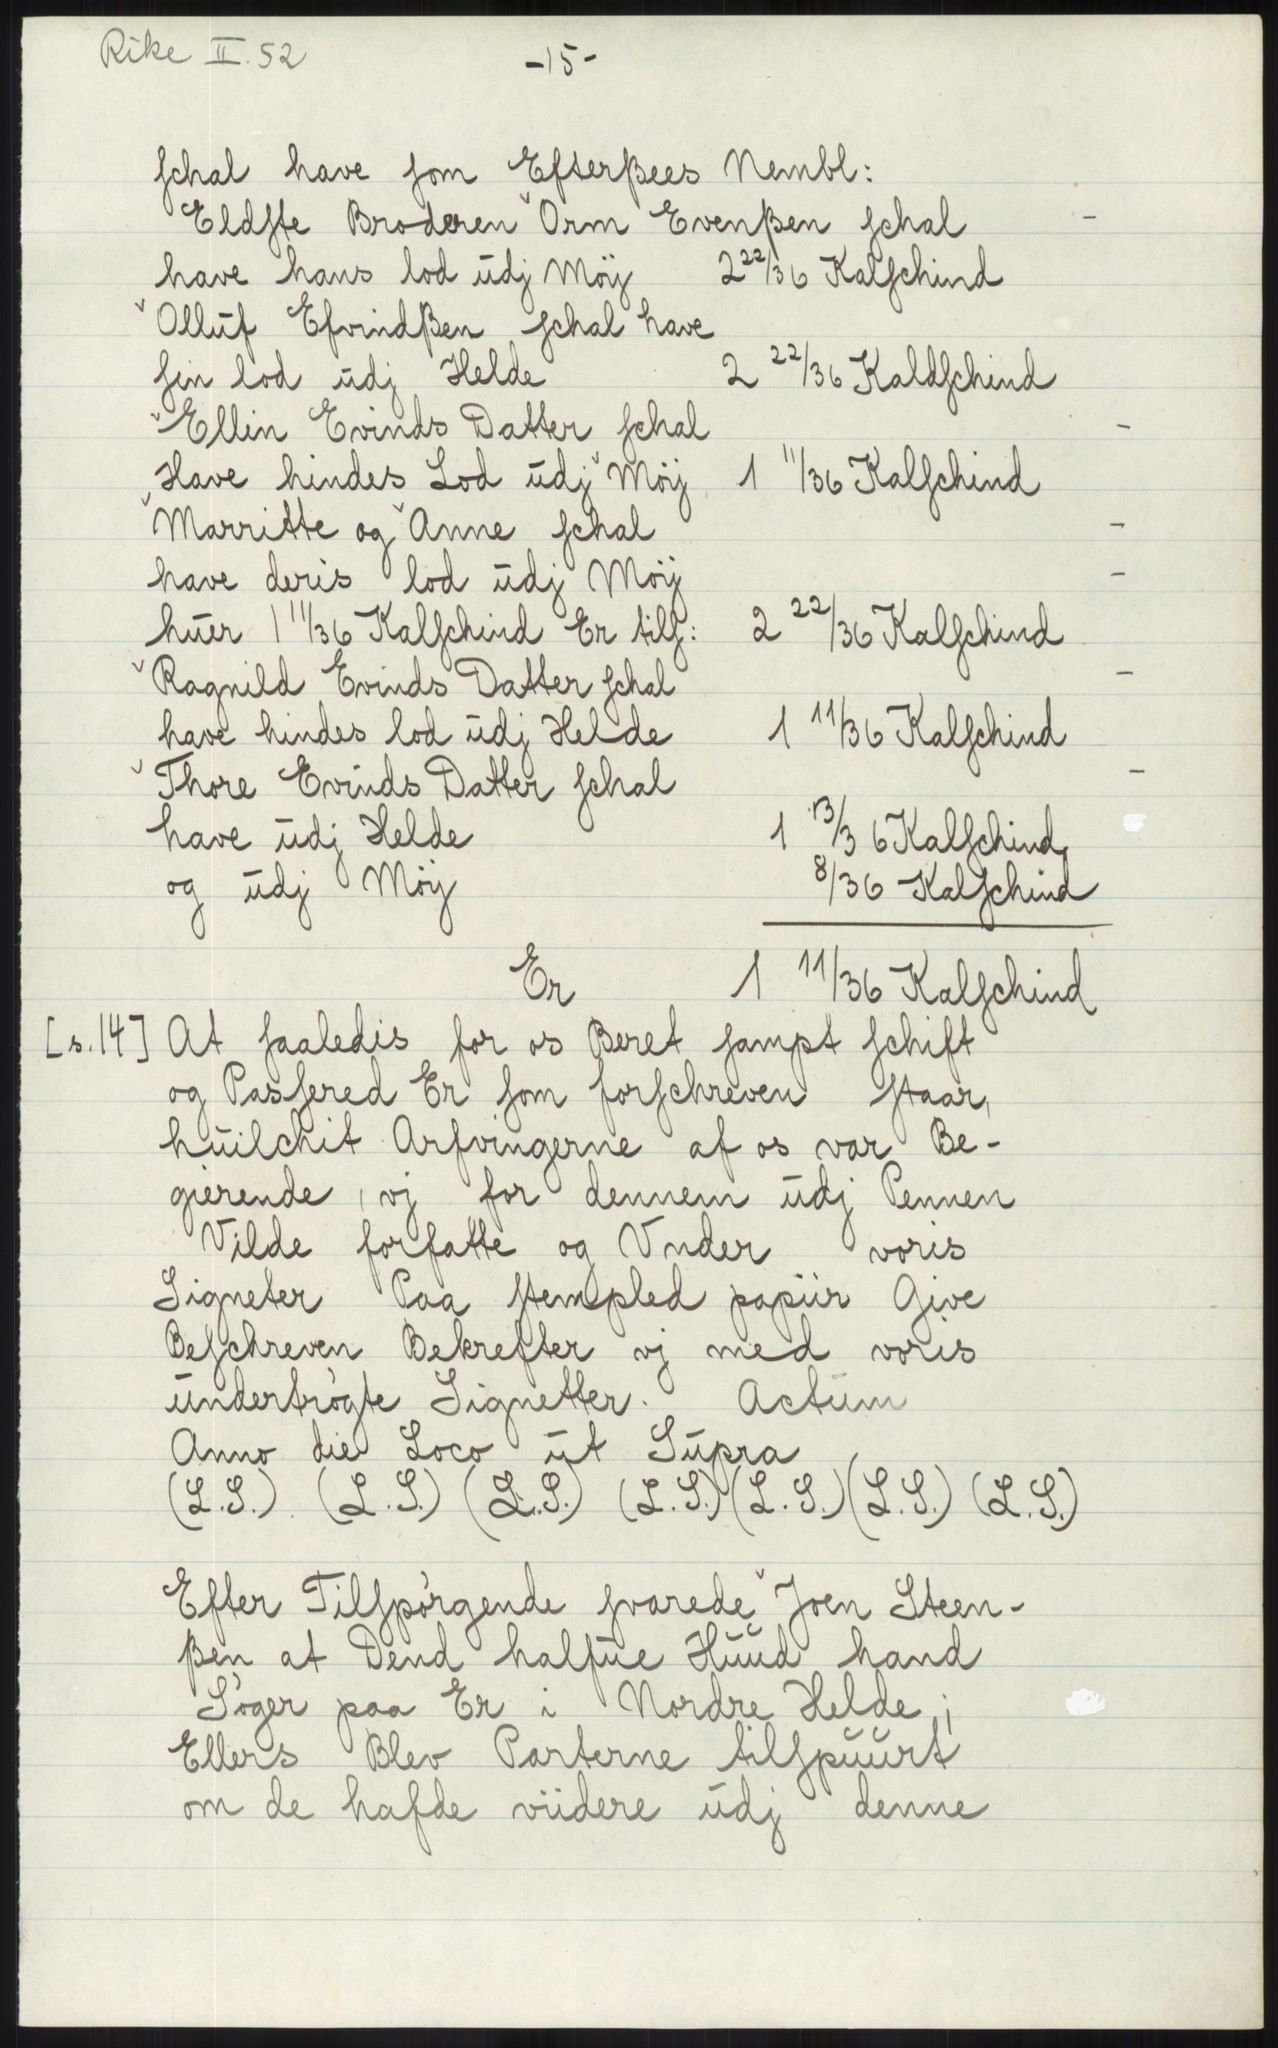 Rike II. 52
-15-
schal have som Efterßees Nembl:
Eldste Broderen ˇOrm Evenßen schal -
have hans lod udj Möy 2 22/36 Kalschind
ˇOlluf Efvindßen schal have
sin lod udj Helde 2 22/36 Kaldschind
ˇEllin Evinds Datter schal -
Have hindes Lod udj ˇMöij 1 11/36 Kalschind
ˇMarritte og ˇAnne schal -
have deris lod udj Möij -
huer 1 11/36 Kalschind Er tils: 2 22/36 Kalschind
ˇRagnild Evinds Datter schal -
have hindes lod udj Helde 1 11/36 Kalschind
ˇThore Evinds Datter schal -
have udj Helde 1 13/36 Kalschind
og udj Möy 8/36 Kalschind
Er 1 11/36 Kalschind
[s.14] At saaledis for os Beret sampt schift
og Passered Er som forschreven staar,
huilchit Arfvingerne af os var Be-
gierende, vj for dennem udj Pennen
Vilde forfatte og Vnder voris
Signeter Paa stempled papiir Give
Beschreven Bekrefter vj med voris
undertrögte Signetter. Actum
Anno die Loco ut Supra
(L.S.) (L.S.) (L.S.) (L.S.) (L.S.) (L.S.) (L.S.)
Efter Tilspörgende svarede ˇJoen Steen-
ßen at Dend halfue Huud hand
Söger paa Er i Nordre Helde;
Ellers Blev Parterne tilspuurt
om de hafde viidere udj denne